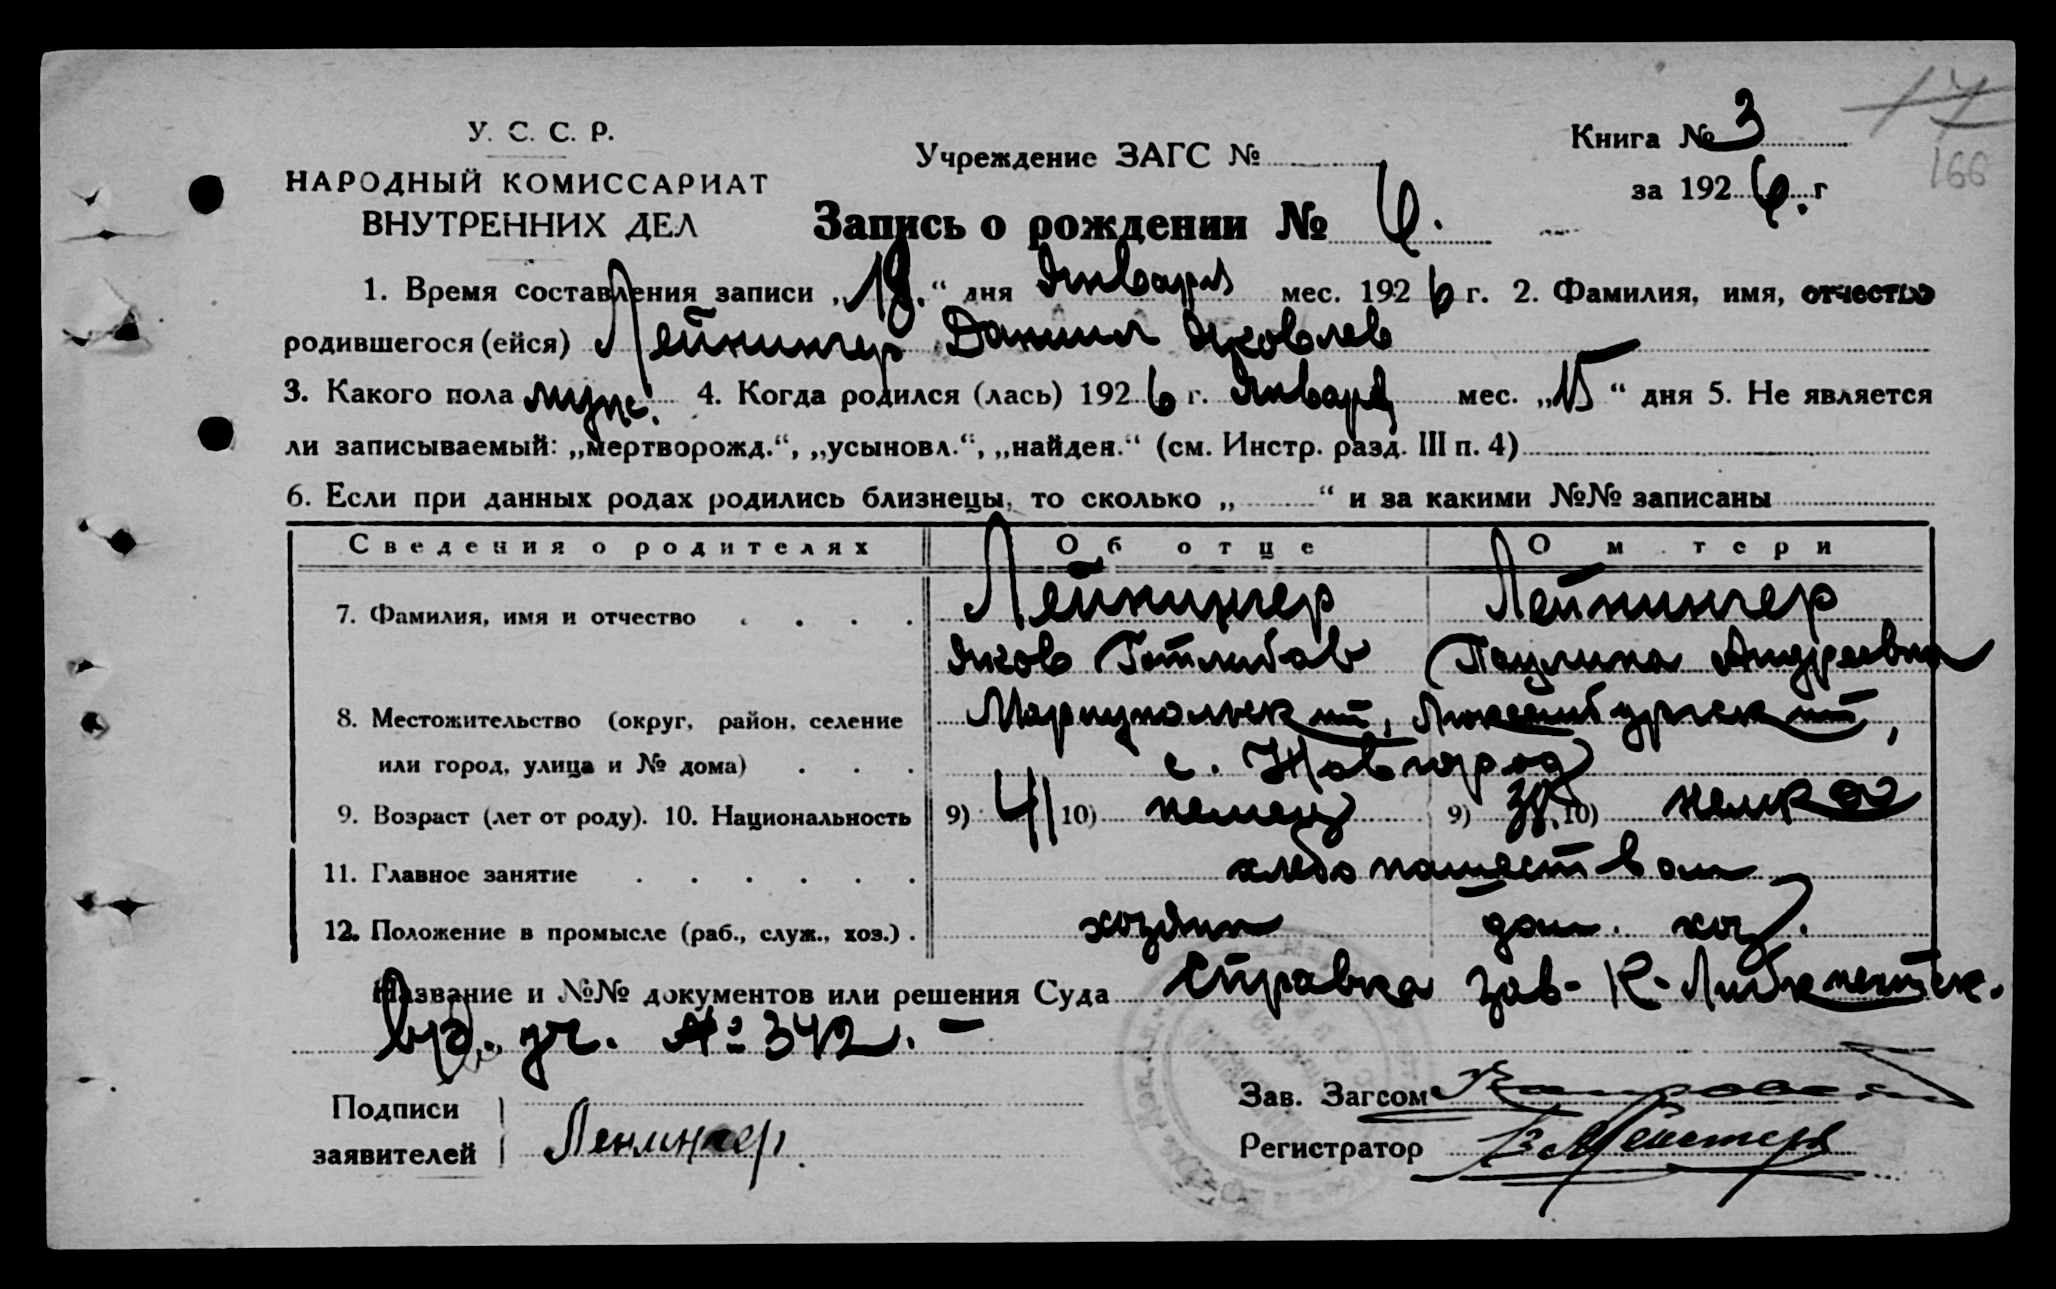 У. С. С. Р.
НАРОДНЫЙ КОМИССАРИАТ
ВНУТРЕННИХ ДЕЛ
Учреждение ЗАГС №
Книга № 3
17
166
за 192 6. г
Запись о рождении № 6.
1. Время составления записи „18.“ дня Января мес. 192 6 г. 2. Фамилия, имя, отчество
родившегося (ейся) Лейнингер Даниил Яковлев
3. Какого пола муж. 4. Когда родился (лась) 192 6 г. Января мес. „15“ дня 5. Не является
ли записываемый: „мертворожд.“, „усыновл.“, „найден.“ (см. Инстр. разд. III п. 4)
6. Если при данных родах родились близнецы, то сколько „ “ и за какими №№ записаны
Сведения о родителях Об отце О м тери
7. Фамилия, имя и отчество Лейнингер Лейнингер
Яков Готлибов Паулина Андреевна
8. Местожительство (округ, район, селение Мариупольск ий, Люксембургск ий,
или город, улица и № дома) с. Новгород
9. Возраст (лет от роду). 10. Национальность 9) 41 10) немец 9) 38. 10) немка
11. Главное занятие хлебопашеством
12. Положение в промысле (раб., служ., хоз.) хозяин дом. хоз.
Название и №№ документов или решения Суда Справка зав- К-Либкнетск.
вр. уч. № 342. –
Подписи
заявителей Ленингер
Зав. Загсом
Регистратор